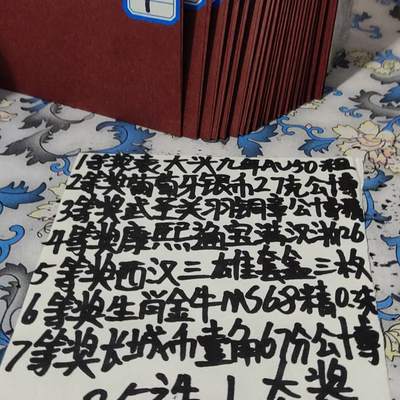 1等奖袁大头九年AU50粗
2等奖葡萄牙银币27克公博
3等奖武圣关羽铜章公博
4等奖康熙通宝满汉
5等奖西汉三雄套盒三枚
6等奖生肖金牛MS68精
7等奖长城币壹角67分公博
选1大奖